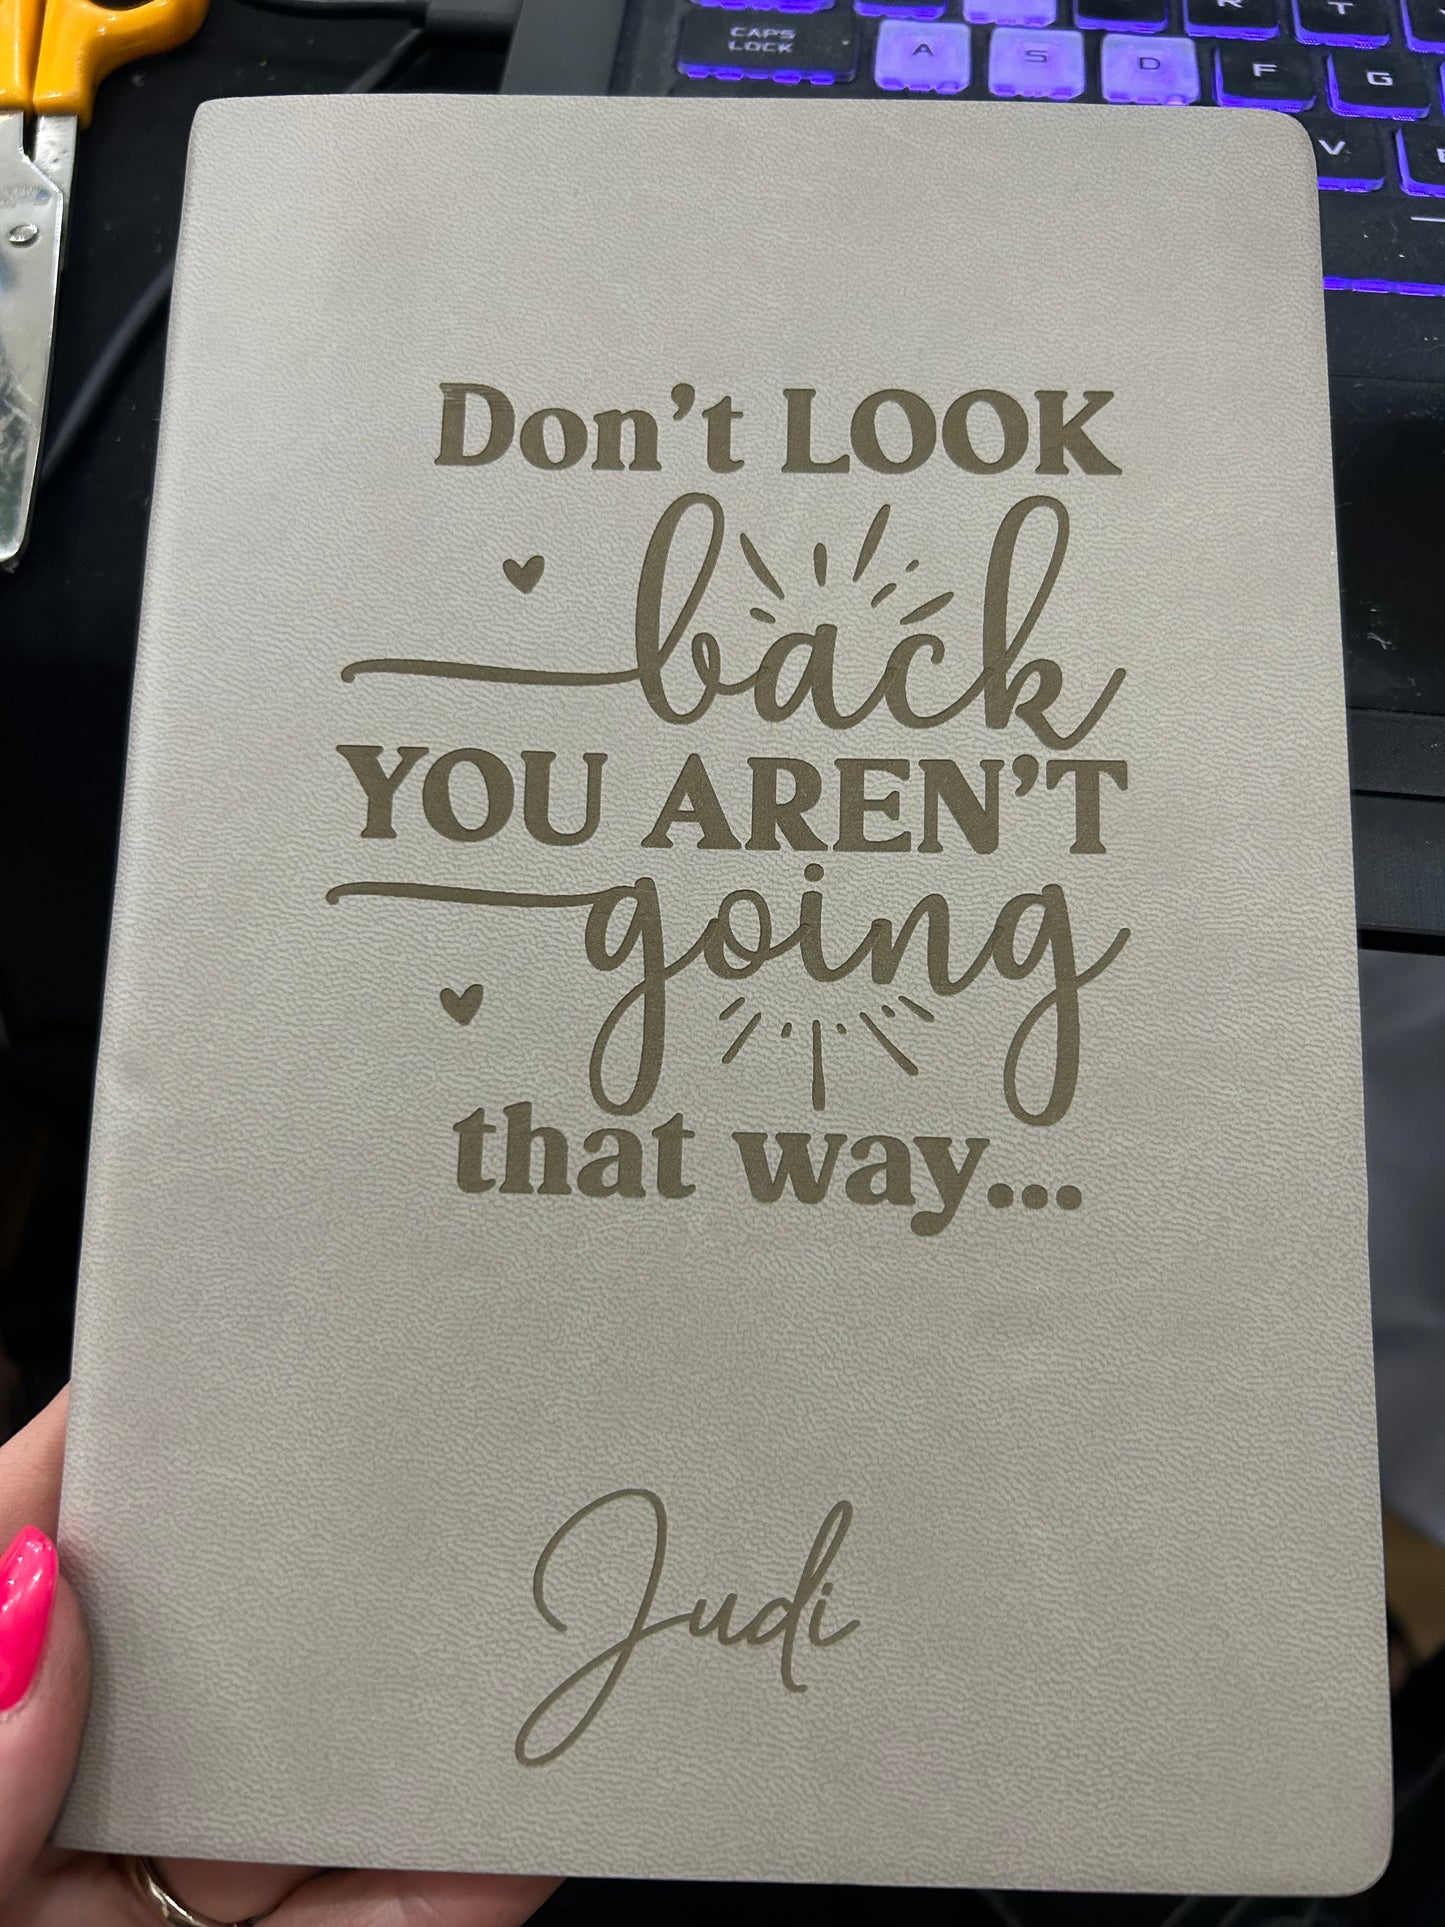 CAPS
LOCK
A S D F G
R T
V
Don't LOOK
back
YOU AREN'T
going
that way...
Judi